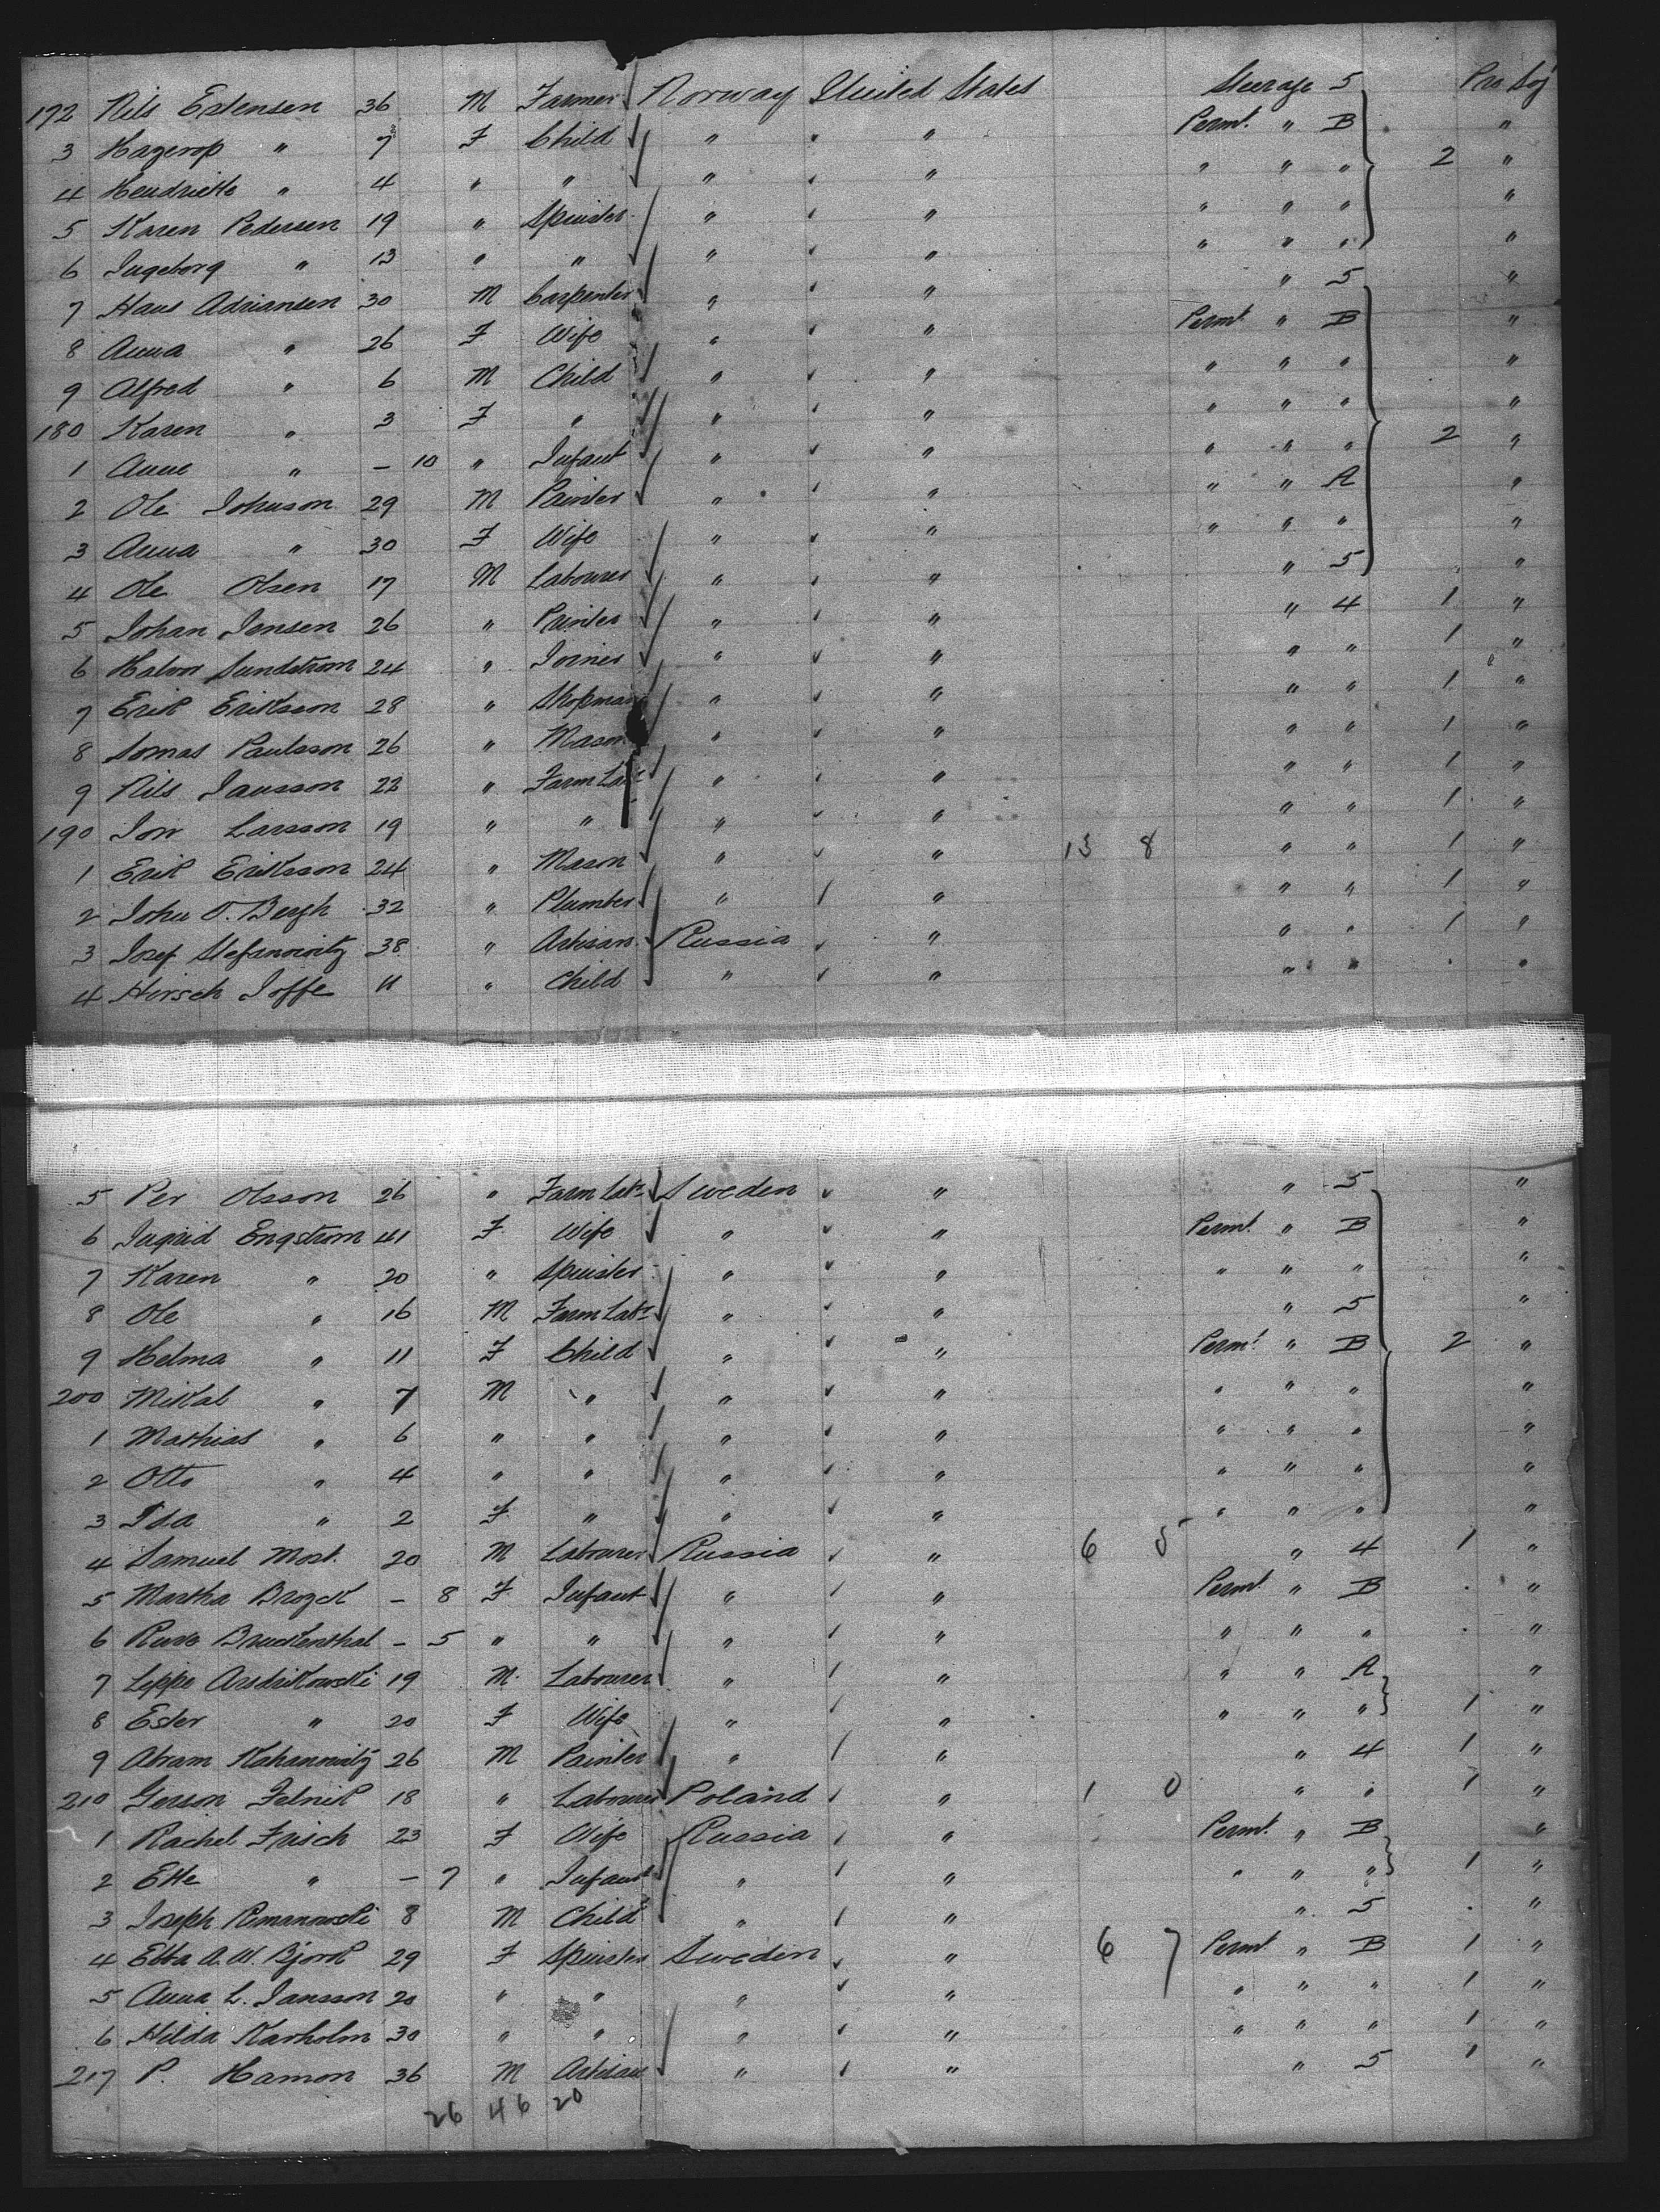 172 Nils Erdensen 36 M Farmer Norway United States Steerage 5 Pro Soj
3 Hagerop " 7 F Child " " " Permt. " B "
4 Hendrikke " 4 " " " " " " " " 2 "
5 Karen Pedersen 19 " Spinster " " " " " " "
6 Ingeborg " 13 " " " " " " " " "
7 Hans Adriansen 30 M Carpenter " " " " 5 "
8 Anna " 26 F Wife " " Permt. " B "
9 Alfred " 6 M Child " " " " " "
180 Karen " 3 F " " " " " " "
1 Anne " – 10 " Infant " " " " " 2 "
2 Ole Johnson 29 M Painter " " " " A "
3 Anna " 30 F Wife " " " " " "
4 Ole Olsen 17 M Labourer " " " 5 "
5 Johan Jensen 26 " Painter " " " 4 1 "
6 Halvor Sundstrom 24 " Joiner " " " " 1 "
7 Erik Eriksson 28 " Shopman " " " " 1 "
8 Tomas Paulsson 26 " Mason " " " " 1 "
9 Nils Jansson 22 " Farm Labr " " " " 1 "
190 Jon Larsson 19 " " " " " " 1 "
1 Erik Eriksson 24 " Mason " " 13 8 " " 1 "
2 John O. Bergh 32 " Plumber " " " " 1 "
3 Josef Stefanowitz 38 " Artisan Russia " " " 1 "
4 Hirsch Joffe 11 " Child " " " "
5 Per Olsson 26 " Farm Labr Sweden " " 5 "
6 Ingrid Engstrom 41 F Wife " " Permt. " B "
7 Karen " 20 " Spinster " " " " " "
8 Ole " 16 M Farm Labr " " " 5 "
9 Helma " 11 F Child " " Permt. " B 2 "
200 Mikal " 7 M " " " " " " "
1 Mathias " 6 " " " " " " " "
2 Otto " 4 " " " " " " " "
3 Ida " 2 F " " " " " " "
4 Samuel Most. 20 M Labourer Russia " 6 5 " 4 1 "
5 Martha Brozek – 8 F Infant " " Permt. " B "
6 Bruckenthal – 5 " " " " " " " "
7 Leppe 19 M. Labourer " " " " A "
8 Ester " 20 F Wife " " " " " 1 "
9 Abram Kahanowitz 26 M Painter " " " 4 1 "
210 Gerson Felnik 18 " Labourer Poland " 1 0 " " 1 "
1 Rachel Frisch 23 F Wife Russia " Permt. " B "
2 Ette " – 7 " Infant " " " " " 1 "
3 Joseph Romanowski 8 M Child " " " 5 "
4 Ebba A. W. Bjork 29 F Spinster Sweden " 6 7 Permt " B 1 "
5 Anna L. Jansson 20 " " " " " " " 1 "
6 Hilda Karholm 30 " " " " " " " 1 "
217 P. Hamon 36 M Artisan " " " 5 1 "
26 46 20